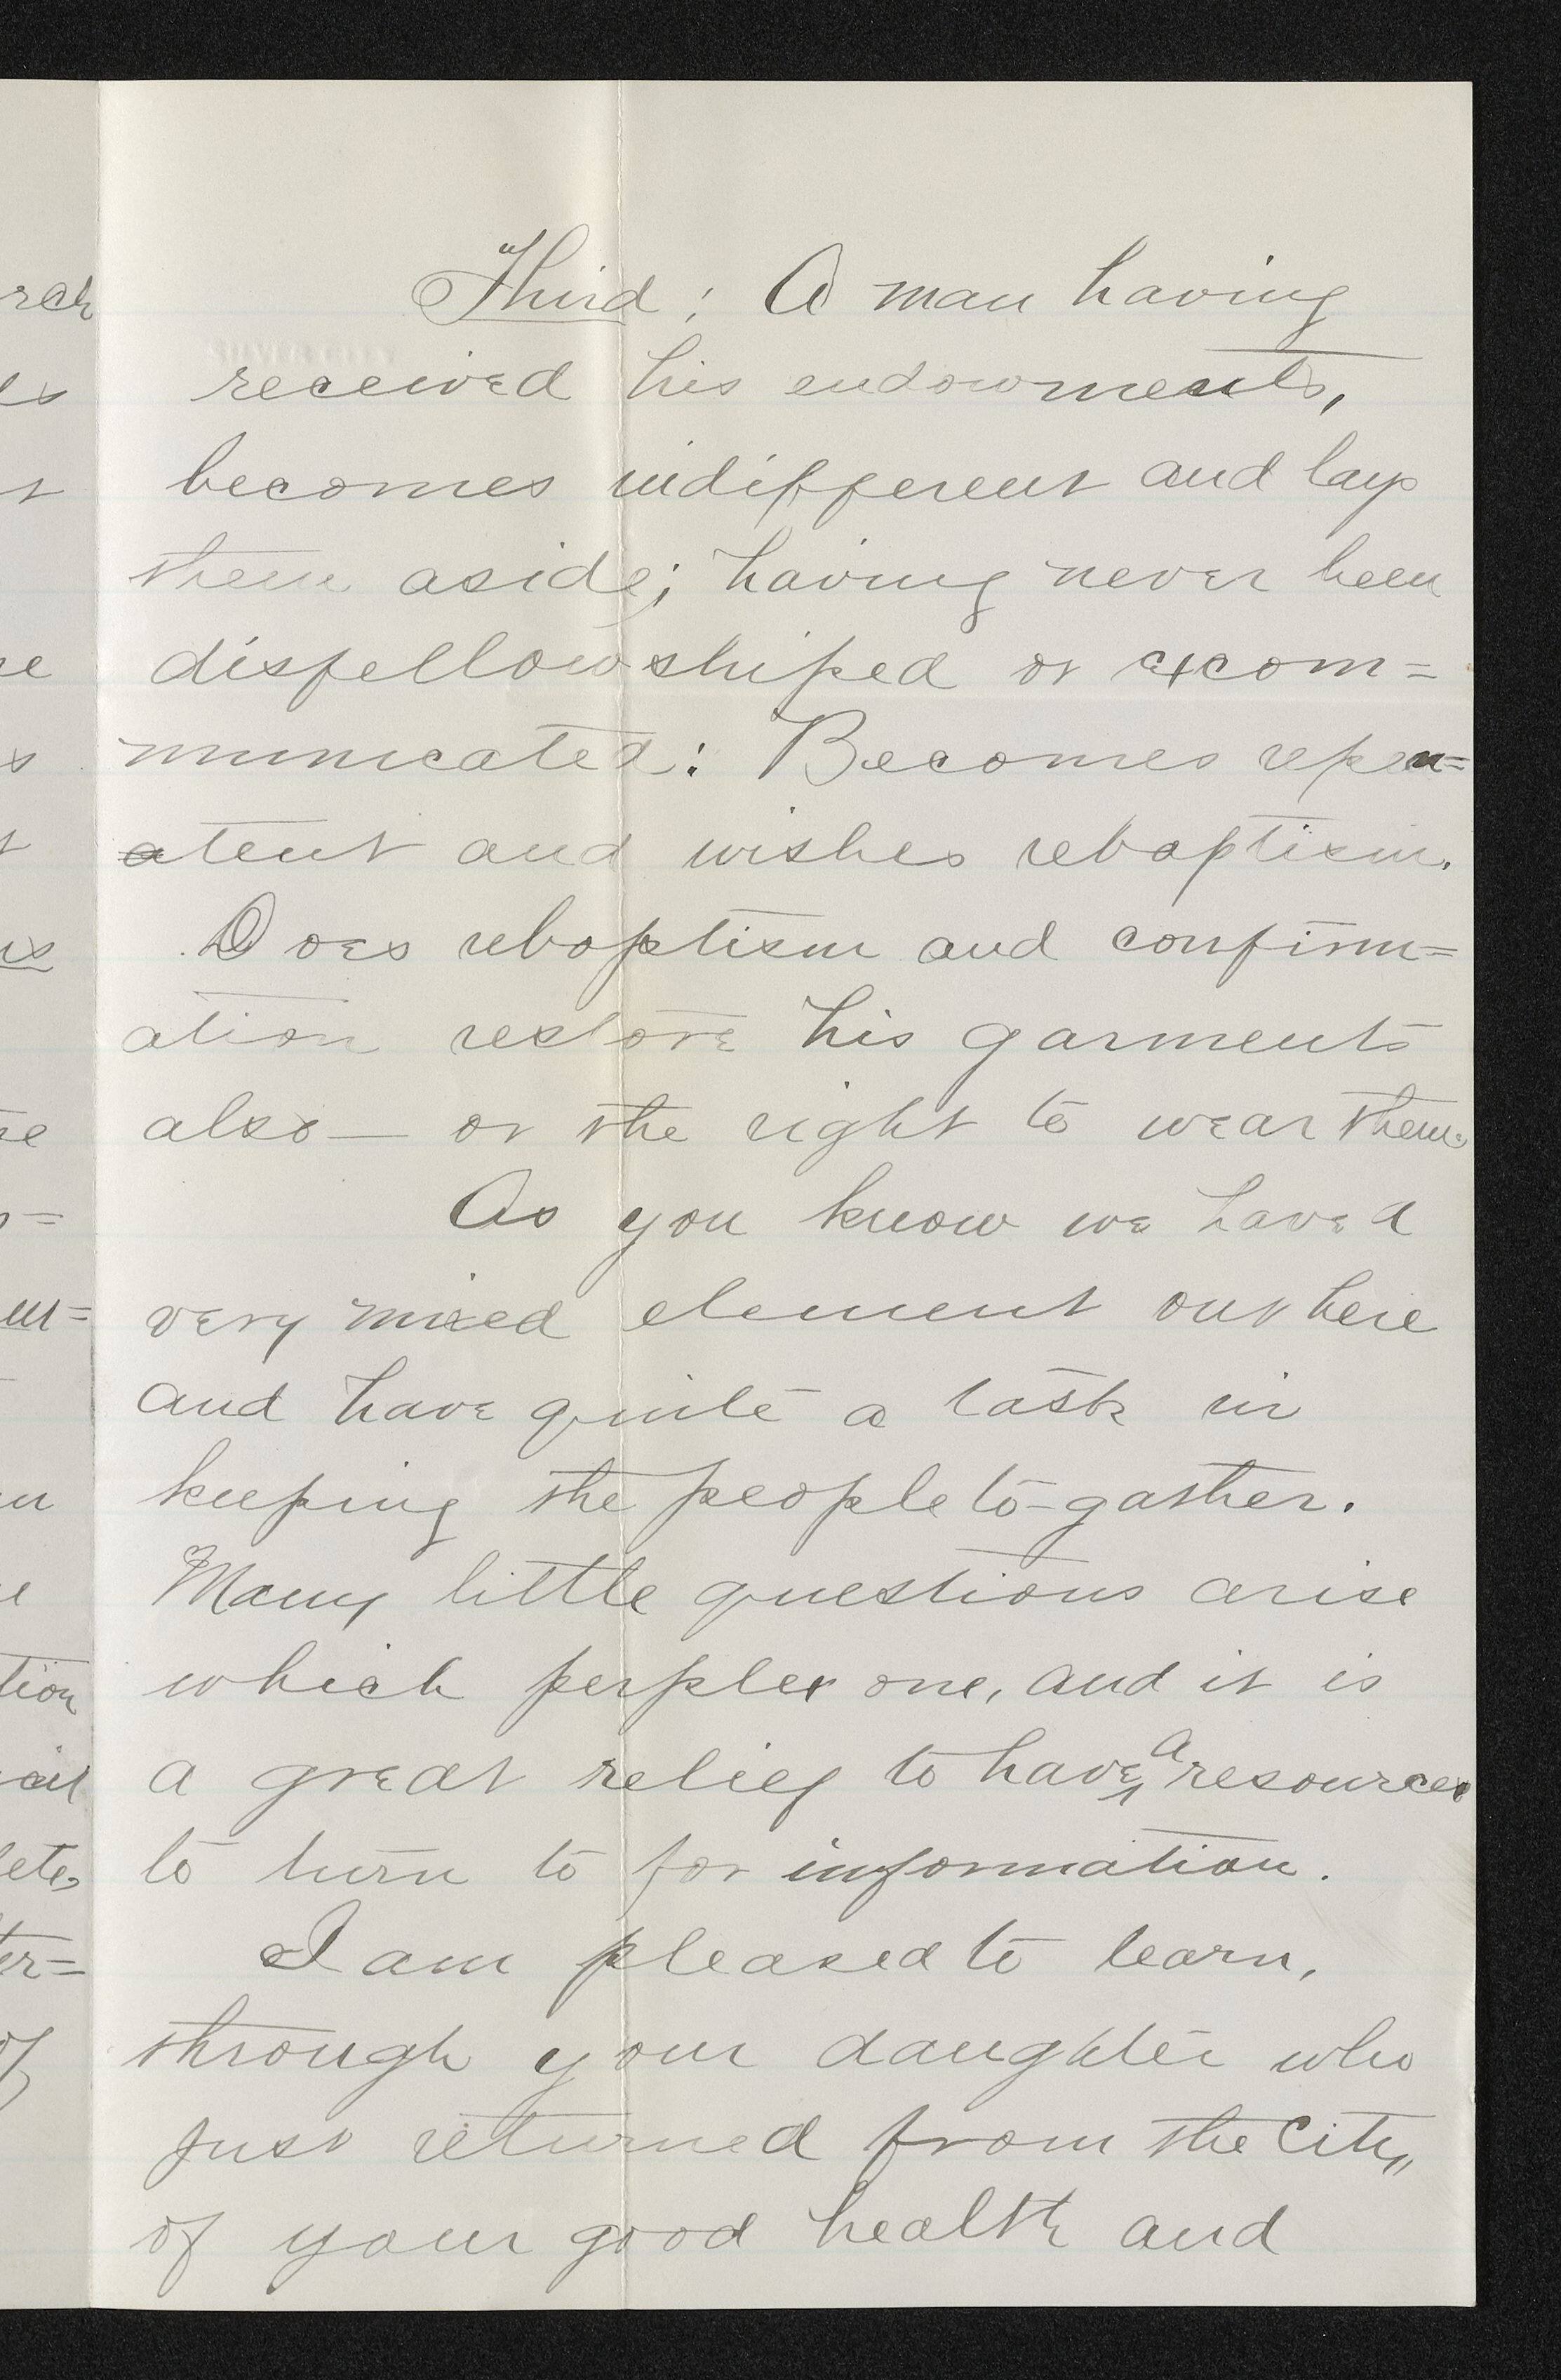 Third: A man having
received his endowments,
becomes indifferent and lays
them aside; having never been
disfellowshiped or excom=
municated: Becomes repen=
a tent and wishes rebaptism.
Does rebaptism and confirm=
ation restore his garments
also— or the right to wear them.
As you know we have a
very mixed element out here
and have quite a task in
keeping the people to-gather.
Many little questions arise
which perplex one, and it is
a great relief to have a resources
to turn to for information.
I am pleased to learn,
through your daughter who
just returned from the City,
of your good health and